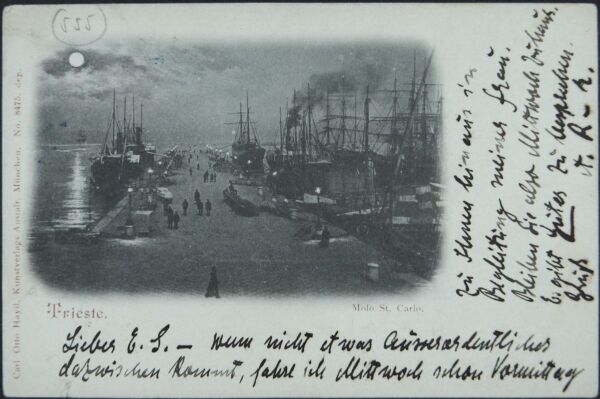 222
Carl Otto Hayd, Kunstverlags-Anstalt, München. No. 8475. dep.
Trieste.
Molo St. Carlo.
Lieber E. S. — wenn nicht etwas Ausserordentliches
dazwischen kommt, fahre ich Mittwoch schon Vormittag
zu Ihnen hinaus in
Begleitung meiner Frau.
Bleiben Sie also Mittwoch zuhaus.
Es gibt Gutes zu besprechen.
Gruß A. R-r.